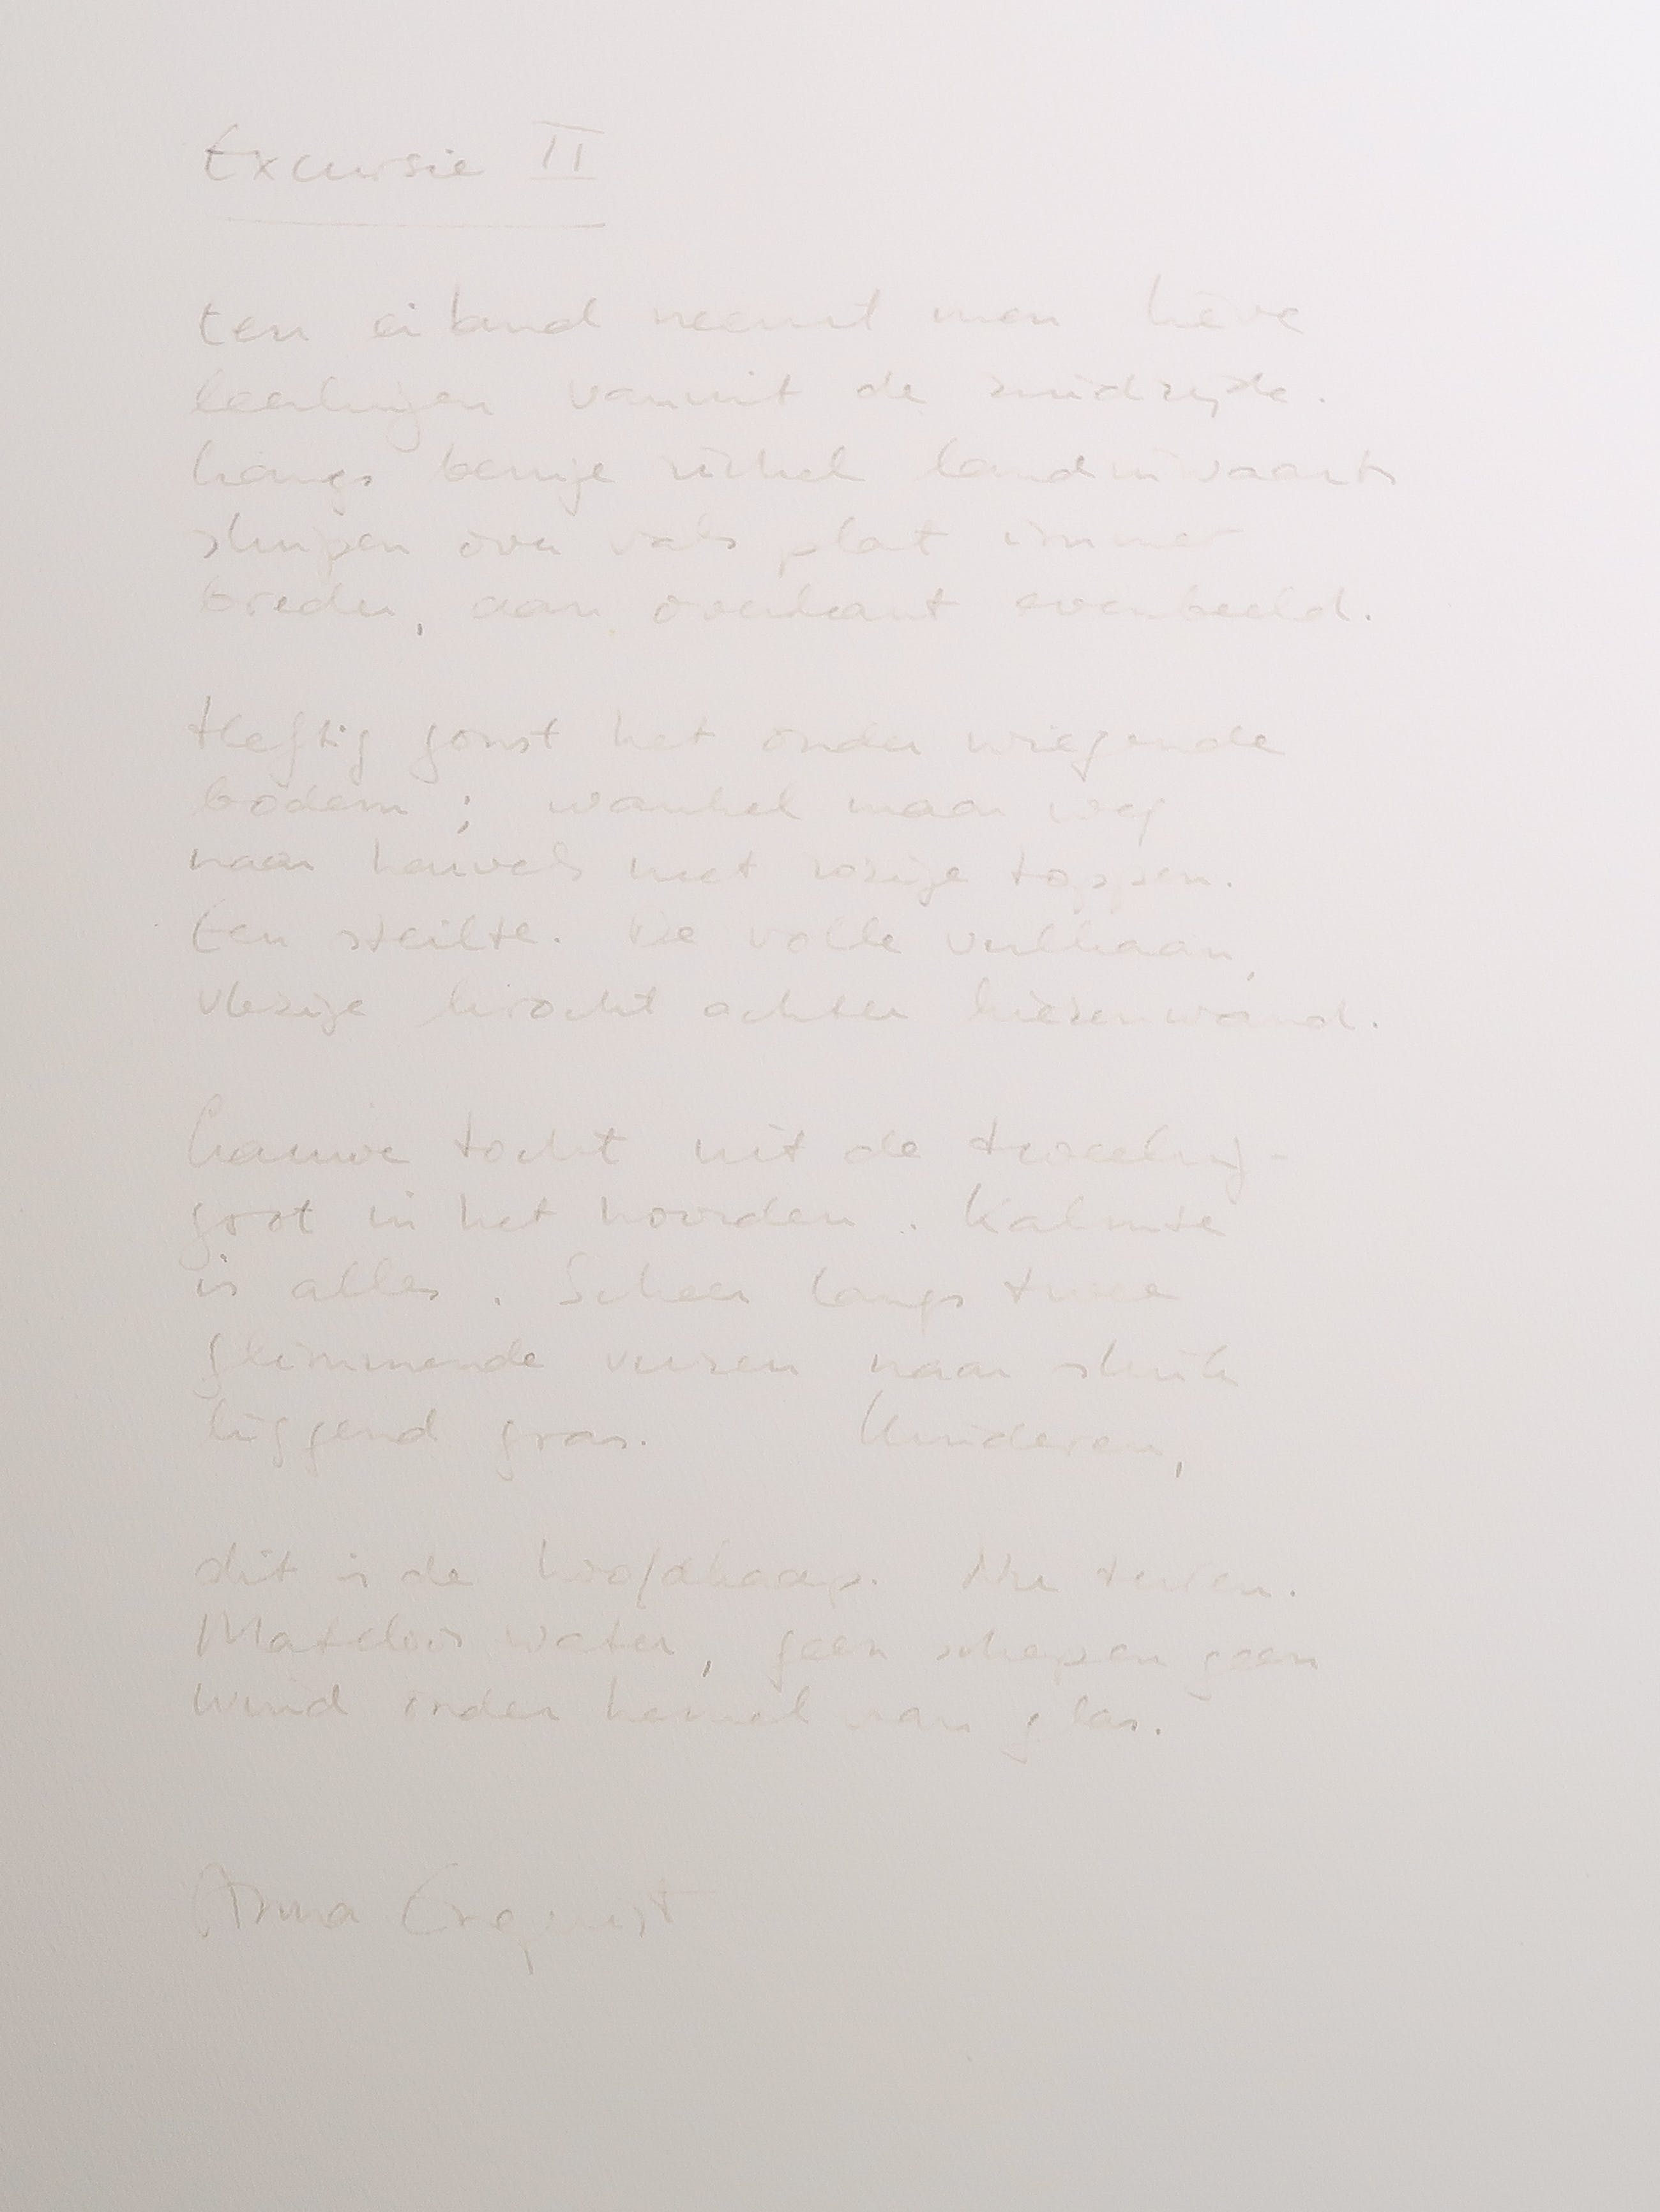 Excursie II
Een eiland neemt men lieve
leerlingen vanuit de zuidzijde.
Langs benige richel landinwaarts
sluipen over vals plat immer
breder, aan overkant evenbeeld.
Heftig gonst het onder wiegende
bodem; wankel maar weg
naar heuvels met rozige toppen.
Een steilte. De volle vulkaan,
vlezige krocht achter kiezenwand.
Lauwe tocht uit de tweeling-
grot in het noorden. Kalmte
is alles. Scheer langs twee
glimmende vuren naar sluik
liggend gras. Kinderen,
dit is de hoofdkaap. Nu turen.
Mateloos water, geen schepen geen
wind onder hemel van glas.
Anna Enquist